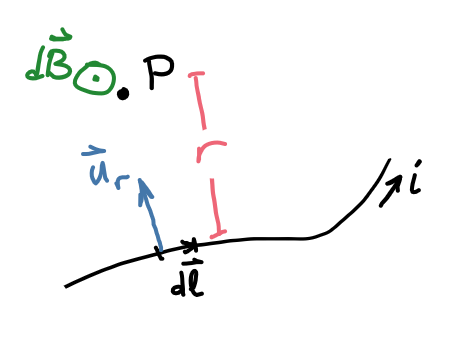 dB⃗
P
r
u⃗r
i
dl⃗